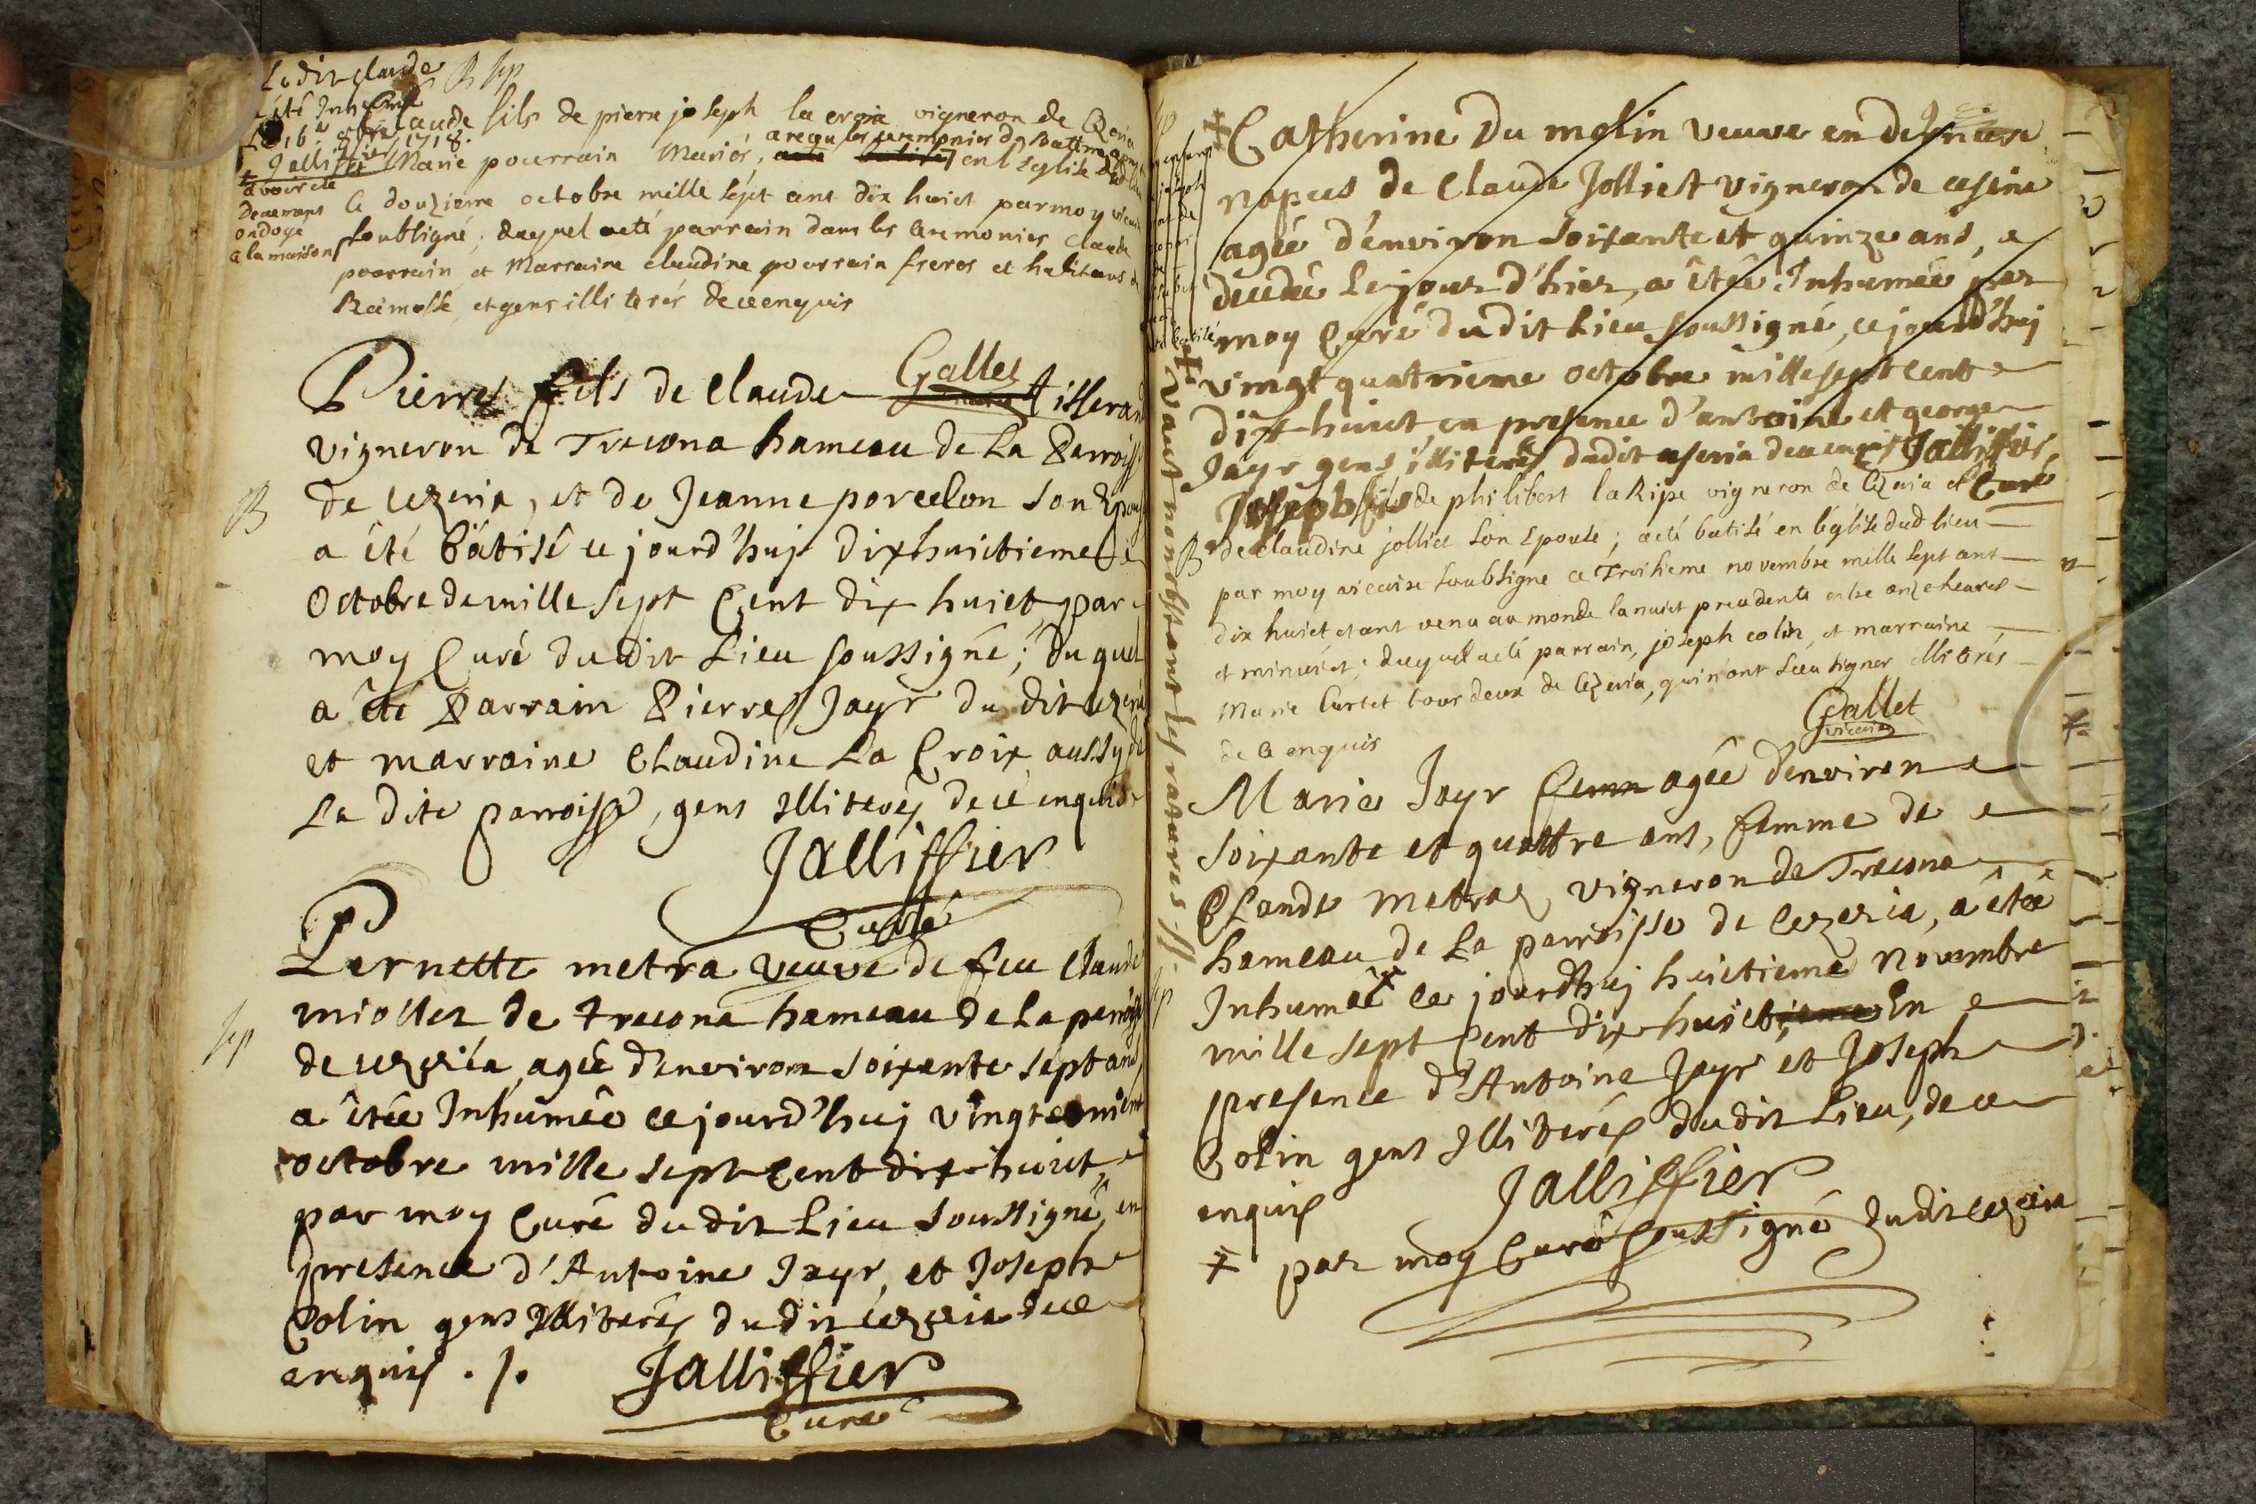 Ledit claude B Sp
a été Inhumé
le 16e 8bre 1718.
Jalliffier
avoir ete
devemant
ondoyé
a la maison
Claude fils de pierre joseph la croix vigneron de
Marie pourrain Mariés, a reçu les ceremonies du Batme en l'Eglise
le douzieme octobre mille sept cent dix huict par moy
soubsigné; duquel a eté parrain dans les ceremonies claude
pourrain et Marraine claudine pourrain freres et habitans
Ramasse, et gens illiterés de ce enquis
Pierre fils de claude tisserand
vigneron de Trecona hameau de La Parroisse
B de cezeria, et de Jeanne porcelon son Epouse
a été bâtisé ce jourd'huy dixhuictieme
Octobre de mille sept Cent dix huict, par
moy Curé du dit Lieu soussigné; du quel
a été Parrain Pierre Jayr du dit cezeria
et marraine Claudine La Croix aussy de
La dite parroisse, gens Illiterés de ce enquis
Gallet
Jalliffier
Curé
Pernette metra veuve de feu Claude
miollet de trecona hameau de La parroisse
Sp de cezeria, agée d'environ soixante sept ans,
a étée Inhumée ce jourd'huy vingt
octobre mille sept Cent dix huict,
par moy Curé du dit Lieu Soussigné, en
presence d'Antoine Jayr, et Joseph
Colin gens Illiterés du dit cezeria de ce
enquis . /.
Jalliffier
Curé
Catherine Du molin veuve en de
nopces de Claude Jolliet vigneron de
agée d'environ Soixante et quinze ans,
decedée Le jour d'hier, a étée Inhumée par
moy Curé du dit Lieu soussigné, ce jourd'huy
vingt quatrieme octobre mille sept cent
dix huict en presence d'antoine et george
Jayr gens illiterés dudit de ce enquis Jalliffier
Curé
vaut nonobstant les ratures
Joseph fils de philibert la Ripe vigneron de Cezeria et
B de claudine jolliet son Epouse; a eté batisé en l'église dud lieu
par moy vicaire soubsigné ce Troisieme novembre mille sept cent
dix huict etant venu au monde la nuict precedente entre onze heures
et minuict; duquel a eté parrain, joseph colin, et marraine
Marie Curtet tous deux de Cezeria, qui n'ont sceu signer illiterés
de ce enquis
Gallet
vicaire
Marie Jayr femm agée d'environ
soixante et quattre ans, femme de
Claude metraz vigneron de Trecona
hameau de La parroisse de Cezeria, a étée
Sp Inhumée ce jourd'huj huictieme Novembre
mille sept Cent dix huict En
presence d'Antoine Jayr et Joseph
Colin gens Illiterés du dit Lieu, de ce
enquis
Jalliffier
par moy Curé soussigné du dit cezeria